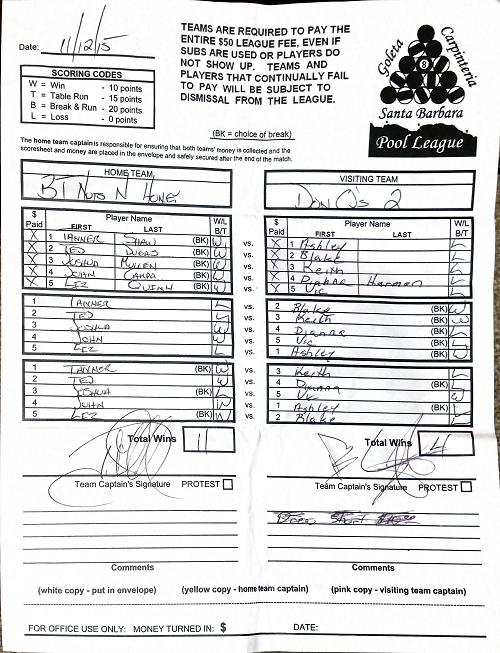 Date: 11/12/15
TEAMS ARE REQUIRED TO PAY THE
ENTIRE $50 LEAGUE FEE, EVEN IF
SUBS ARE USED OR PLAYERS DO
NOT SHOW UP. TEAMS AND
PLAYERS THAT CONTINUALLY FAIL
TO PAY WILL BE SUBJECT TO
DISMISSAL FROM THE LEAGUE.
Goleta Carpinteria
8
Santa Barbara
Pool League
SCORING CODES
W = Win - 10 points
T = Table Run - 15 points
B = Break & Run - 20 points
L = Loss - 0 points
(BK = choice of break)
The home team captain is responsible for ensuring that both teams' money is collected and the
scoresheet and money are placed in the envelope and safely secured after the end of the match.
HOME TEAM VISITING TEAM
BT Nuts N Honey Don Q's 2
$ Paid Player Name FIRST LAST W/L B/T $ Paid Player Name FIRST LAST W/L B/T
X 1 TANNER SHAW (BK) W vs. X 1 Ashley L
X 2 TED (BK) W vs. X 2 Blake L
X 3 JOSHUA MULLEN (BK) W vs. X 3 Keith L
X 4 JOHN (BK) W vs. X 4 Dianne Harmon L
X 5 LIZ QUINN (BK) W vs. X 5 Vic L
1 TANNER L vs. 2 Blake (BK) W
2 TED L vs. 3 Keith (BK) W
3 JOSHUA W vs. 4 Dianne (BK) L
4 JOHN W vs. 5 Vic (BK) L
5 LIZ L vs. 1 Ashley (BK) W
1 TANNER (BK) W vs. 3 Keith L
2 TED W vs. 4 Dianne (BK) L
3 JOSHUA (BK) L vs. 5 Vic W
4 JOHN W vs. 1 Ashley (BK) L
5 LIZ (BK) W vs. 2 Blake L
Total Wins 11 Total Wins 4
Team Captain's Signature PROTEST Team Captain's Signature PROTEST
Comments Comments
(white copy - put in envelope) (yellow copy - home team captain) (pink copy - visiting team captain)
FOR OFFICE USE ONLY: MONEY TURNED IN: $ DATE: